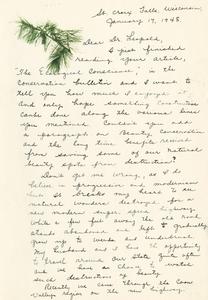 St. Croix Falls, Wisconsin,
January 19, 1948.
Dear Dr. Leopold,
I just finished
reading your article,
"The Ecological Conscience", in the
Conservation bulletin and I want to
tell you how much I enjoyed it
and only hope something constructive
can be done along the various lines
you mentioned. Couldn't you add
a paragraph on Beauty Conservation
and the long time benefits derived
from saving some of our natural
beauty spots from destruction?
Don't get me wrong, as I do
believe in progression and modernism
but it breaks my heart to see
natural wonders destroyed for a
new modern super speed highway,
while a few feet away the old road
stands abandoned and left to gradually
grow up to weeds and underbrush.
My husband and I had the opportunity
to travel around our state quite often
and we have so many
such destructions of beauty.
Recently we came through the Coon
Valley region on the new highway.